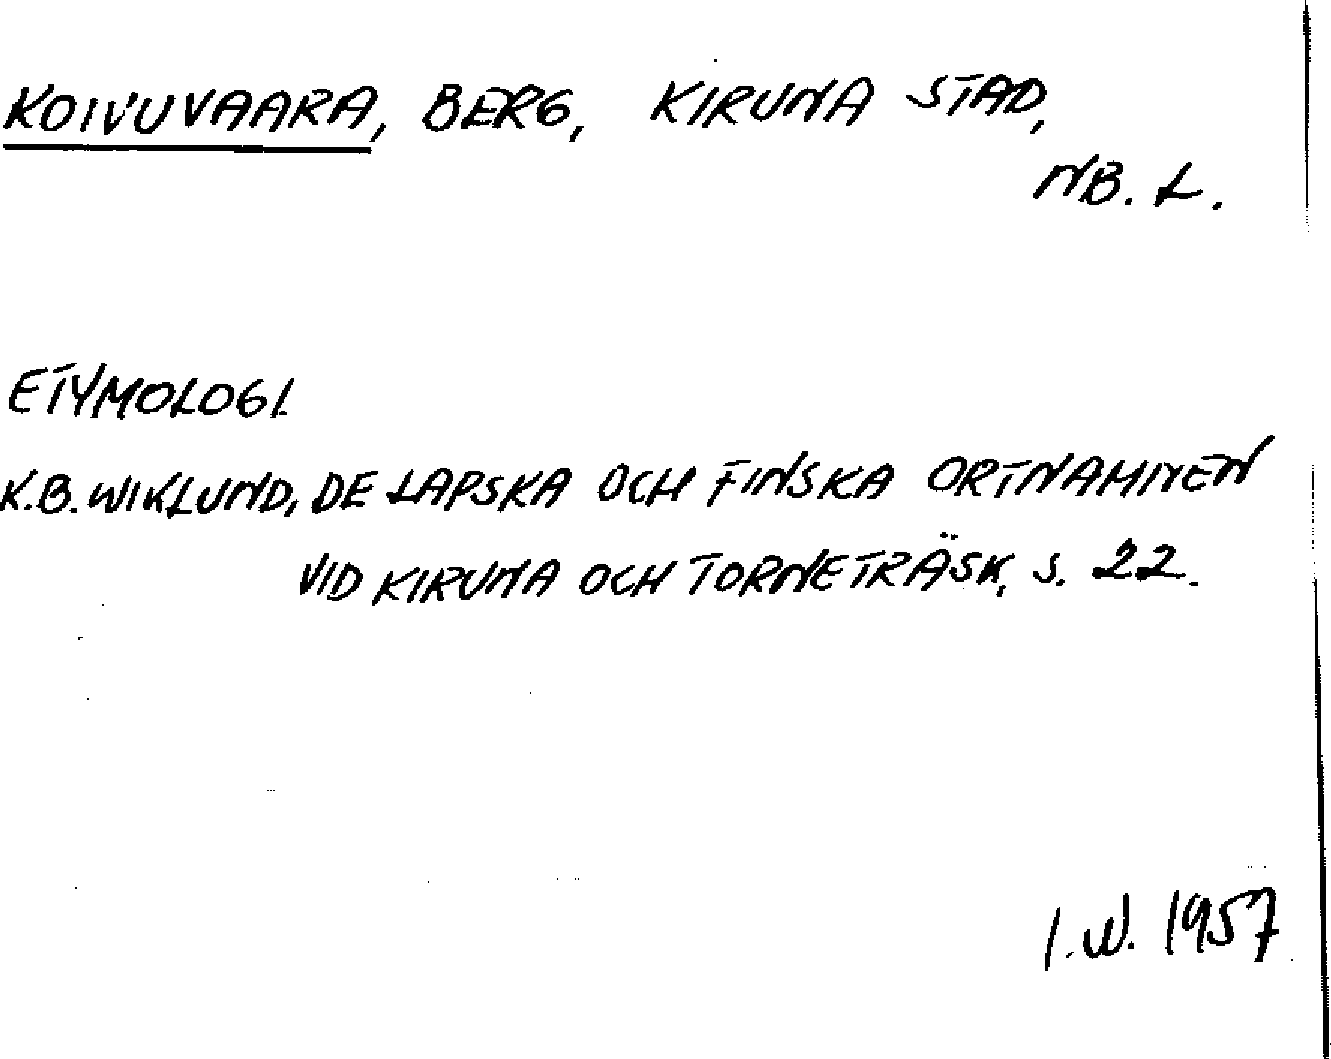 KOIVUVAARA, BERG, KIRUNA STAD,
NB. L.
ETYMOLOGI.
K.B. WIKLUND, DE LAPSKA OCH FINSKA ORTNAMNEN
VID KIRUNA OCH TORNETRÄSK, S. 22.
I.W. 1957